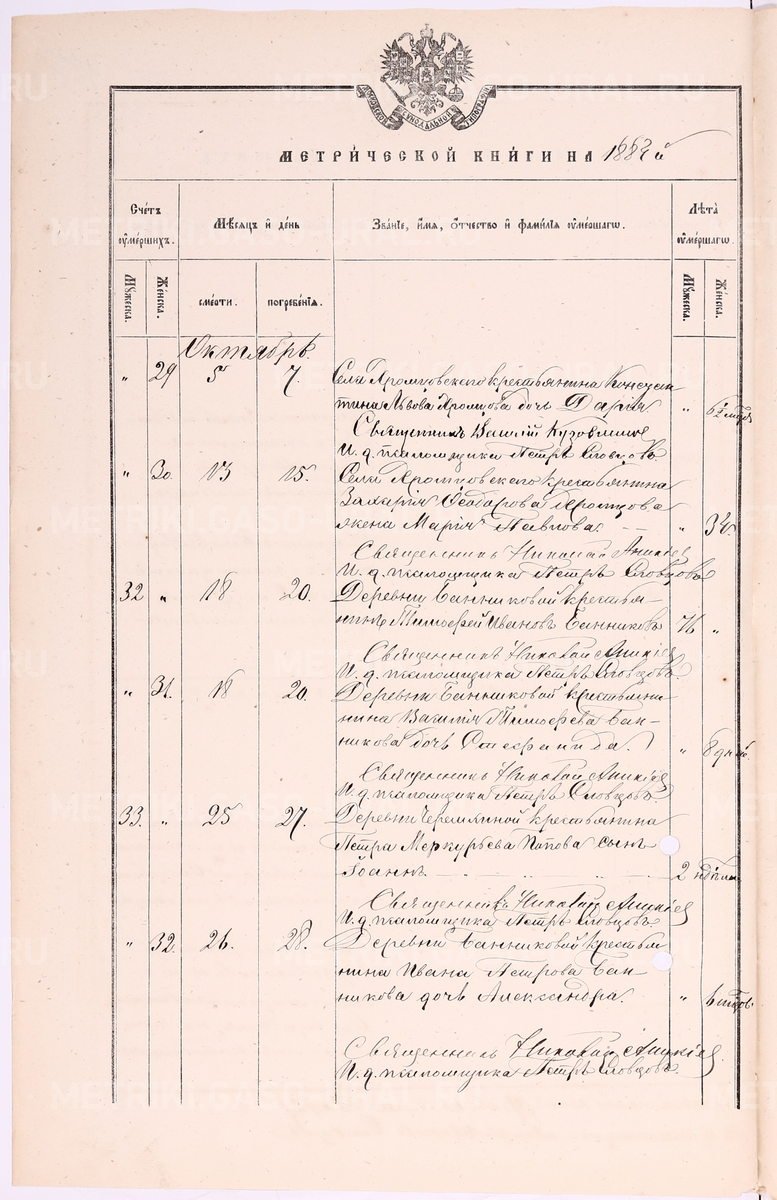 МЕТРИ́ЧЕСКОЙ КНИ́ГИ НА 1883 й
Сче́тъ оу҆ме́ршихъ.
Мѣ́сяцъ и҆ де́нь
Зва́нїе, и҆́мя, ѻ҆́тчество и҆ фами́лїя оу҆ме́ршагѡ.
Лѣ́та оу҆ме́ршагѡ.
Му́жеска.
Же́нска.
сме́рти.
погребе́нїя.
Му́жеска.
Же́нска.
Октябрь.
" 29 5 7. Села Кромцовскаго крестьянина Констан
тина Львова дочь Дарія "
Священникъ Василій
И. д. псаломщика Петръ Словцовъ
" 30. 13 15. Села крестьянина
Захарія Ѳеодорова
жена Марія Павлова. "
Священникъ Николай Аникіев
И. д. псаломщика Петръ Словцовъ
32 " 18 20. Деревни Банниковой крестья-
нинъ Тимоѳей Ивановъ Банниковъ 76 "
Священникъ Николай Аникіев
И. д. псаломщика Петръ Словцовъ.
" 31. 18 20. Деревни Банниковой крестьяни
нина Василія Тимоѳеева Бан-
никова дочь Стефанида. " 8 дней.
Священникъ Николай Аникіев
И. д. псаломщика Петръ Словцовъ.
33. " 25 27. Деревни крестьянина
Петра Меркурьева Попова сынъ
Іоаннъ. 2 недѣли
Священникъ Николай Аникіев
И. д. псаломщика Петръ Словцовъ
" 32. 26. 28. Деревни Банниковой крестья
нина Ивана Петрова Бан-
никова дочь Александра. "
Священникъ Николай Аникіев
И. д. псаломщика Петръ Словцовъ.